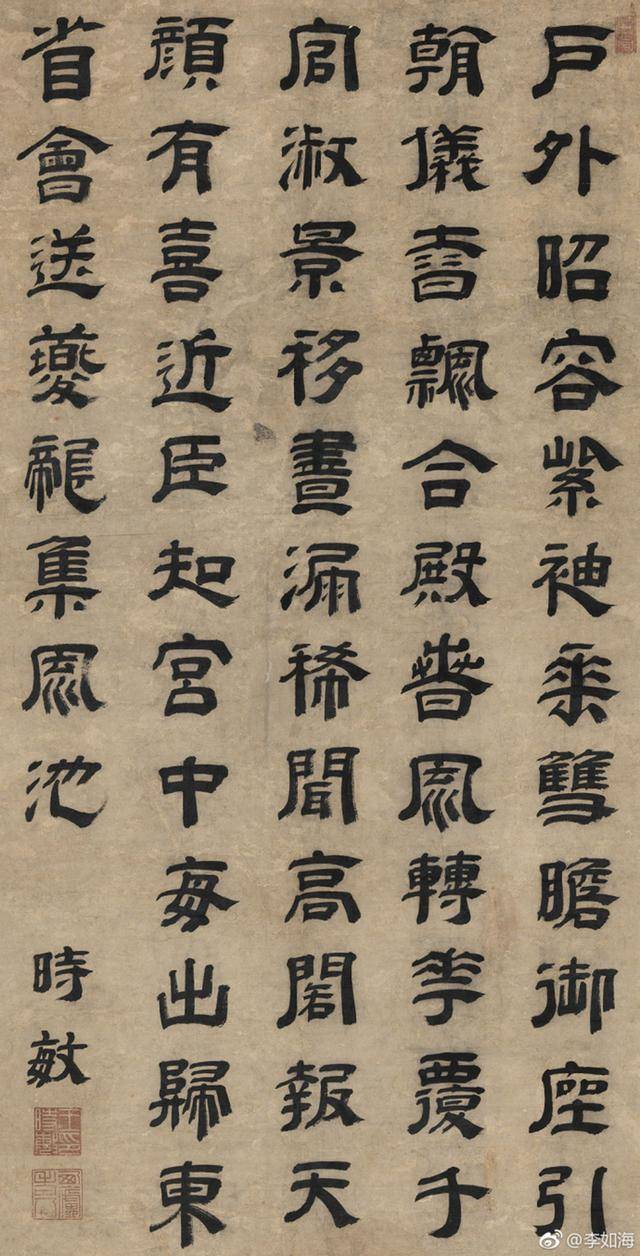 戶外昭容紫袖垂雙瞻御座引
朝儀香飄合殿春風轉花覆千
官淑景移晝漏稀聞高閣報天
顏有喜近臣知宮中每出歸東
省會送夔龍集鳳池
時敏
@李如海